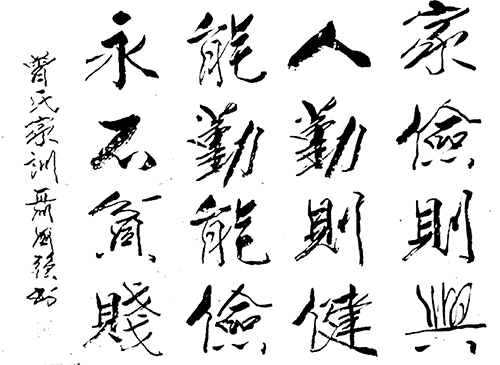 家儉則興
人勤則健
能勤能儉
永不貧賤
曾氏家訓聶國强书